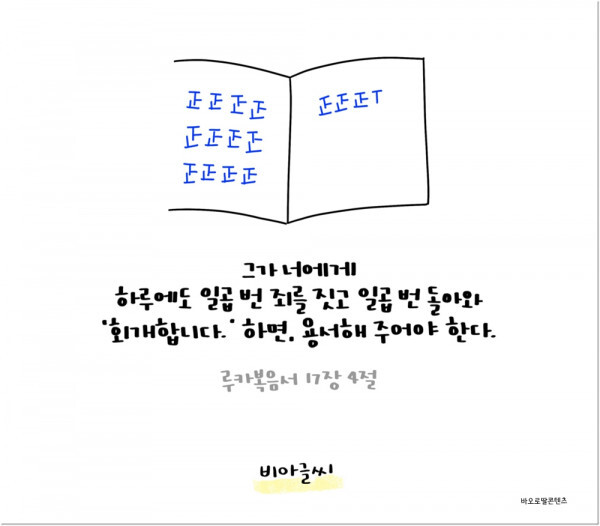 正 正 正 正
正 正 正 正
正 正 正 正
正 正 正 T
그가 너에게
하루에도 일곱 번 죄를 짓고 일곱 번 돌아와
'회개합니다.' 하면, 용서해 주어야 한다.
루카복음서 17장 4절
비아글씨
바오로딸콘텐츠